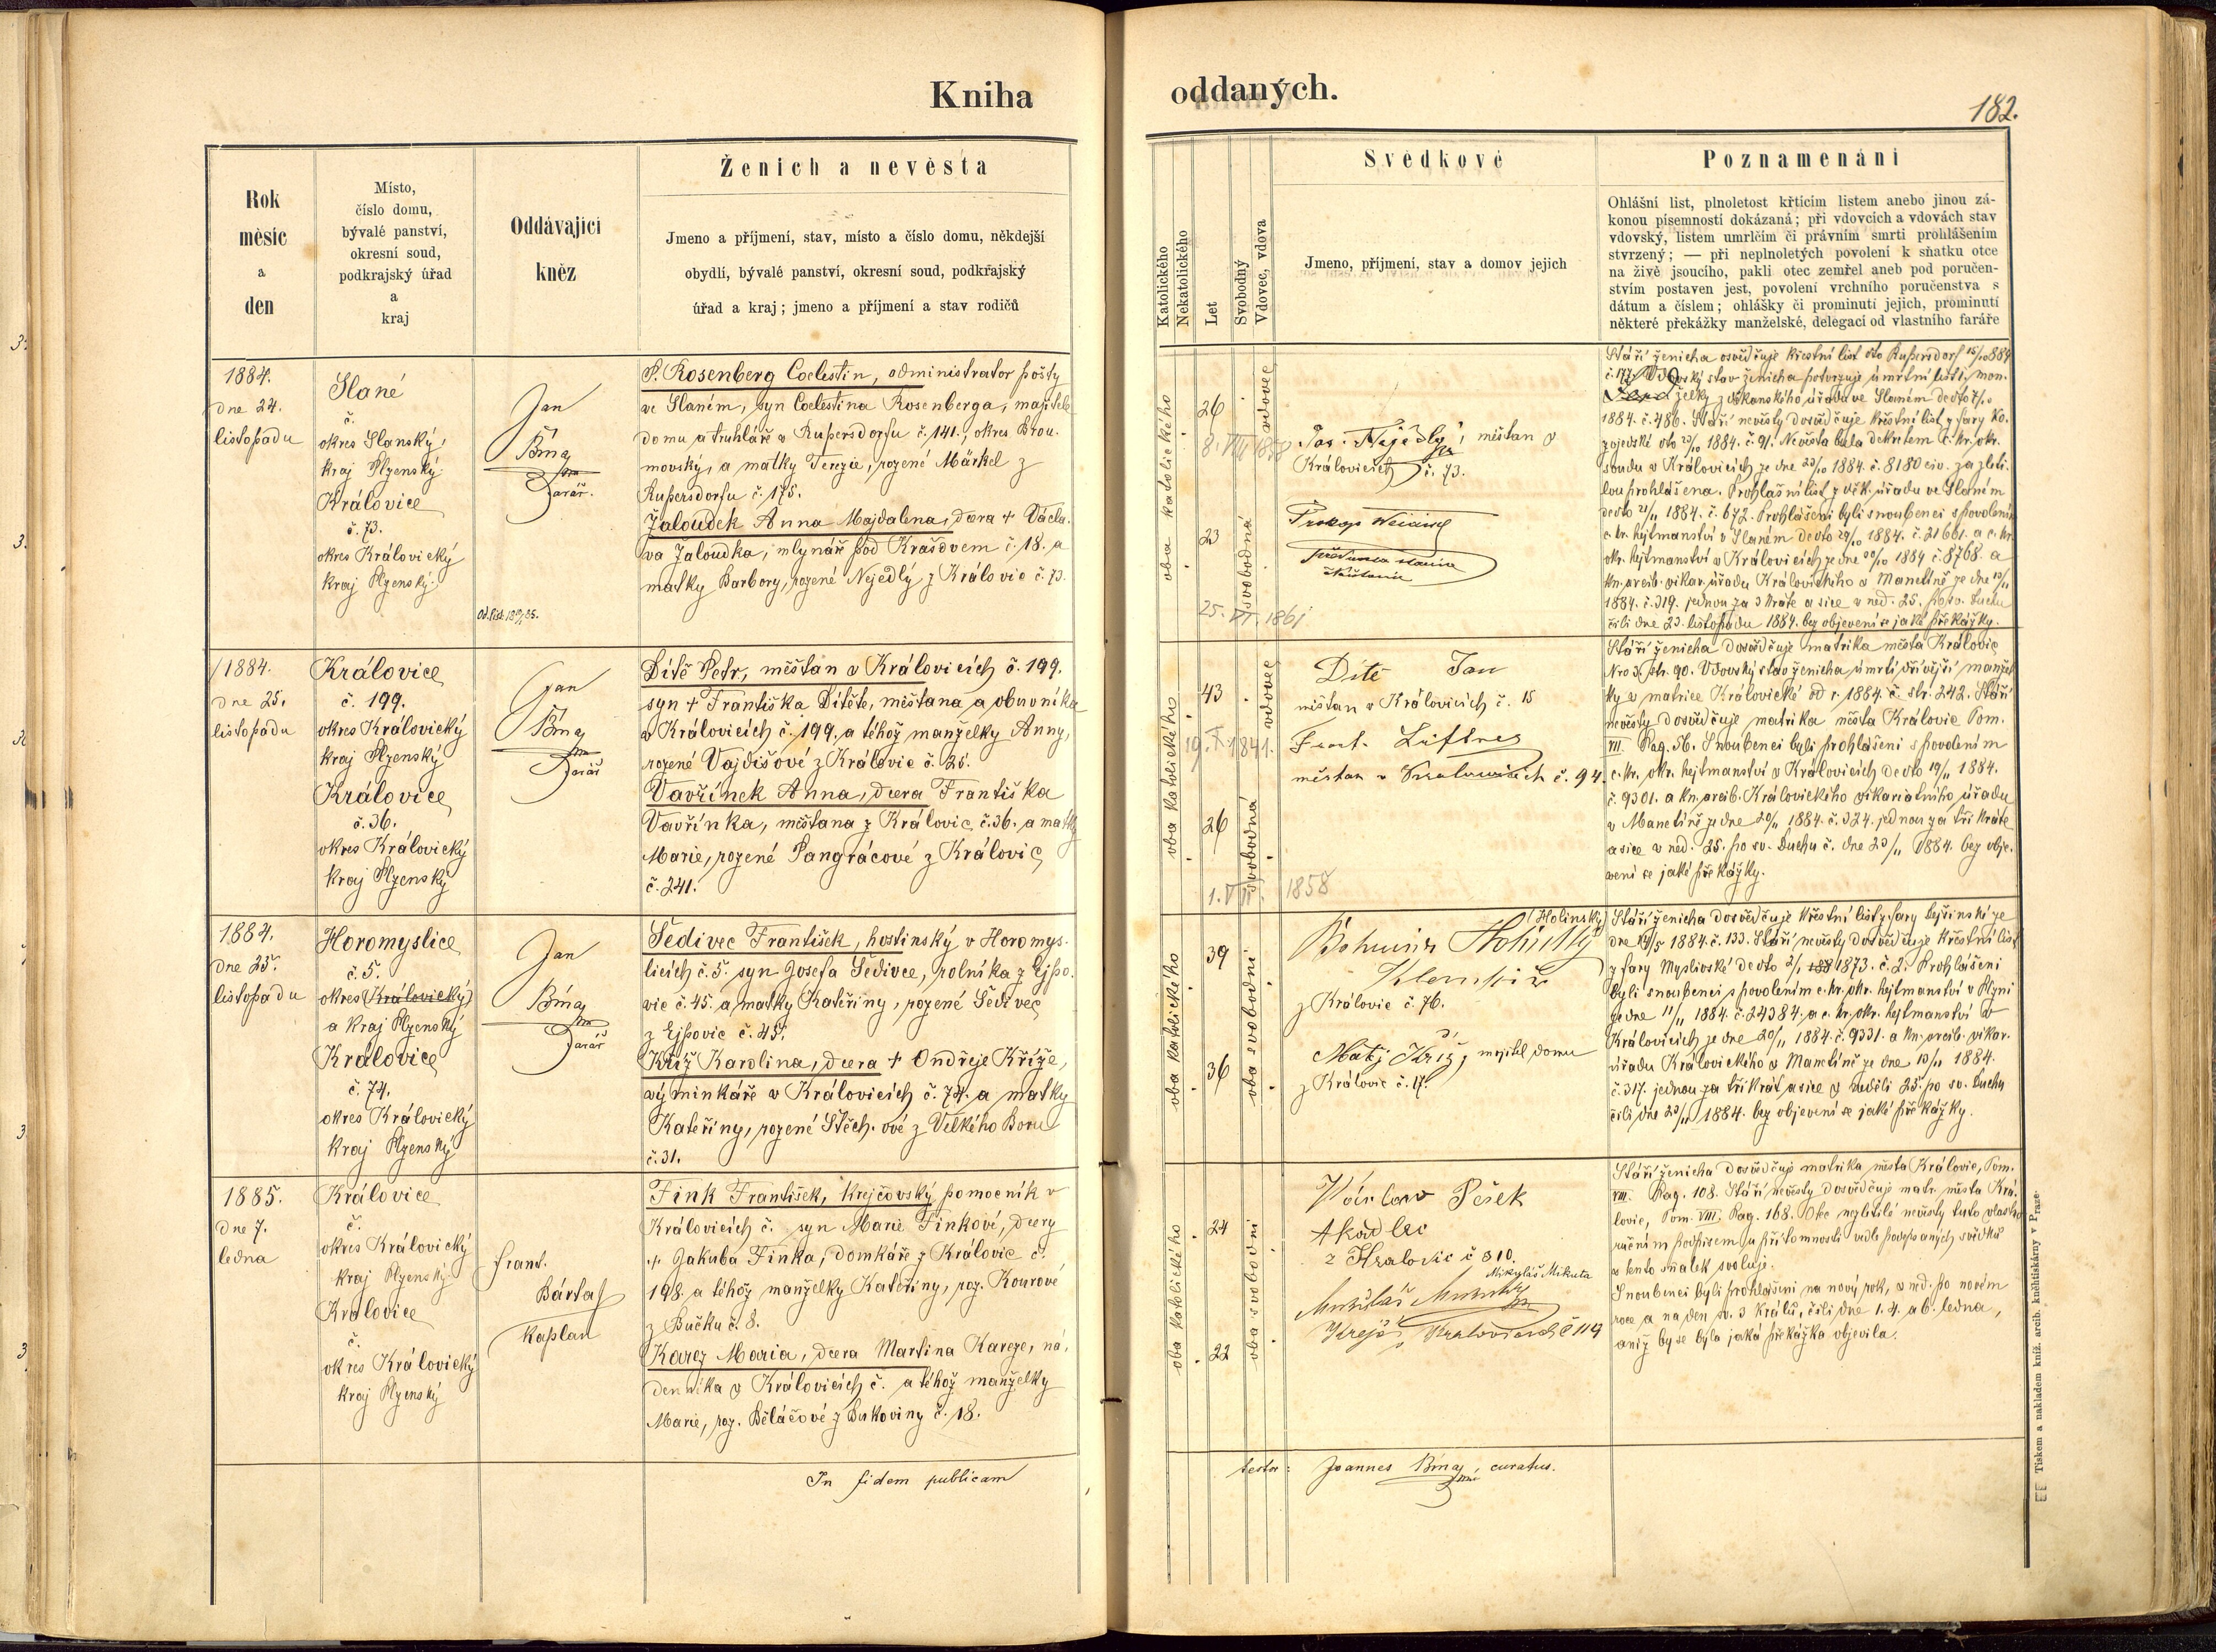 Kniha
Rok
měsíc
a
den
Místo,
číslo domu,
bývalé panství,
okresní soud,
podkrajský úřad
a
kraj
Oddávající
kněz
Ženich a nevěsta
Jmeno a příjmení, stav, místo a číslo domu, někdejší
obydlí, bývalé panství, okresní soud, podkrajský
úřad a kraj; jmeno a příjmení a stav rodičů
1884.
dne 24.
listopadu
Slané
č.
okres Slanský,
kraj Plzenský
Královice
č. 73.
okres Královický
kraj Plzenský
Jan
farář.
P. Rosenberg Coelestin, administrator pošty
ve Slaném, syn Coelestina Rosenberga, majitele
domu a truhláře v Rupersdorfu č. 141., okres Brou-
movský, a matky Terezie, rozené Märkel z
Rupersdorfu č. 175.
Žaloudek Anna Majdalena, dcera + Václa-
va Žaloudka, mlynáře pod Krašovem č. 18. a
matky Barbory, rozené Nejedlý z Královic č. 73.
1884.
dne 25.
listopadu
Královice
č. 199.
okres Královický
kraj Plzenský
Královice
č. 36.
okres Královický
kraj Plzenský
Jan
farář
Dítě Petr, měšťan v Královicích č. 199.
syn + Františka Dítěte, měšťana a obuvníka
v Královicích č. 199. a téhož manželky Anny,
rozené Vajdišové z Královic č. 25.
Vavřínek Anna, dcera Františka
Vavřínka, měšťana z Královic č. 36. a matky
Marie, rozené Pangrácové z Královic
č. 241.
1884.
dne 25.
listopadu
Horomyslice
č. 5.
okres (Královický)
a kraj Plzenský
Královice
č. 74.
okres Královický
kraj Plzenský
Jan
farář
Šedivec František, hostinský v Horomys-
licích č. 5. syn Josefa Šedivce, rolníka z Ejpo-
vic č. 45. a matky Kateřiny, rozené Šedivec
z Ejpovic č. 45.
Kříž Karolina, dcera + Ondřeje Kříže,
výminkáře v Královicích č. 74. a matky
Kateřiny, rozené Stěch-ové z Velkého Boru
č. 31.
1885.
dne 7.
ledna
Královice
č.
okres Královický
kraj Plzenský
Královice
č.
okres Královický
kraj Plzenský
Frant.
Bárta
kaplan
Fink František, krejčovský pomocník v
Královicích č. syn Marie Finkové, dcery
+ Jakuba Finka, domkáře z Královic č.
198. a téhož manželky Kateřiny, roz. Kourové
z Bučku č. 8.
Karez Maria, dcera Martina Kareze, ná-
denníka v Královicích č. a téhož manželky
Marie, roz. Běláčové z Bukoviny č. 18.
In fidem publicam
oddaných.
182.
Katolického
Nekatolického
Let
Svobodný
Vdovec, vdova
Svědkové
Jmeno, příjmení, stav a domov jejich
Poznamenání
Ohlášní list, plnoletost křticím listem anebo jinou zá-
konou písemností dokázaná; při vdovcích a vdovách stav
vdovský, listem umrlčím či právním smrti prohlášením
stvrzený; — při neplnoletých povolení k sňatku otce
na živě jsoucího, pakli otec zemřel aneb pod poručen-
stvím postaven jest, povolení vrchního poručenstva s
dátum a číslem; ohlášky či prominutí jejich, prominutí
některé překážky manželské, delegací od vlastního faráře
oba katolického
26
8. VIII 1858
vdovec
23
svobodná
25. VI. 1861
Jos. Nejedlý, měšťan v
Královicích č. 73.
Prokop
Stáří ženicha osvědčuje křestní list dto Rupersdorf 15/10 884
č. 177. Vdovský stav ženicha potvrzuje úmrtní list man-
želky z děkanského úřadu ve Slaném
1884. č. 486. Stáří nevěsty dosvědčuje křestní list z fary Ko-
zojedské dto 23/10 1884. č. 91. Nevěsta byla dekretem c. kr. okr.
soudu v Královicích ze dne 23/10 1884. č. 8180 civ. za zleti-
lou prohlášena. Prohlašní list z děk. úřadu ve Slaném
deto 21/11 1884. č. 672. Prohlášeni byli snoubenci s povolením
c. kr. hejtmanství v Slaném deto 29/10 1884. č. 21661. a c. kr.
okr. hejtmanství v Královicích ze dne 30/10 1884 č. 8768. a
kn. arcib. vikar. úřadu Královického v Manetíně ze dne 13/11
1884. č. 319. jednou za 3 kráte a sice v ned. 25. po sv. Duchu
čili dne 23. listopadu 1884. bez objevení se jaké překážky.
oba katolického
43
19. X. 1841.
vdovec
26
svobodná
1. VII. 1858
Dítě Jan
měšťan v Královicích č. 15
Frant. Liftner
měšťan v Královicích č. 94.
Stáří ženicha dosvědčuje matrika města Královic
Nro 3. str. 90. Vdovský stav ženicha úmrtí dřívější manžel-
ky v matrice Královické od r. 1884. č. str. 242. Stáří
nevěsty dosvědčuje matrika města Královic Tom.
VII. Pag. 56. Snoubenci byli prohlášeni s povolením
c. kr. okr. hejtmanství v Královicích deto 19/11 1884.
č. 9301. a kn. arcib. Královického vikariatního úřadu
v Manetíně ze dne 20/11 1884. č. 324. jednou za tři kráte
a sice v ned. 25. po sv. Duchu č. dne 23/11 1884. bez obje-
vení se jaké překážky.
oba katolického
39
36
oba svobodni
(Holinský)
Bohumír Holinský
Klempíř
z Královic č. 76.
Matěj Kříž, majitel domu
z Královic č. 17.
Stáří ženicha dosvědčuje křestní list z fary Dejšinské ze
dne 14/5 1884. č. 133. Stáří nevěsty dosvědčuje křestní list
z fary Myslivské deto 2/1 188 1873. č. 2. Prohlášeni
byli snoubenci s povolením c. kr. okr. hejtmanství v Plzni
ze dne 11/11 1884. č. 24384. a c. kr. okr. hejtmanství v
Královicích ze dne 20/11 1884. č. 9331. a kn. arcib. vikar.
úřadu Královického v Manetíně ze dne 13/11 1884.
č. 317. jednou za třikrát a sice v neděli 25. po sv. Duchu
čili dne 23/11 1884. bez objevení se jaké překážky.
oba katolického
24
22
oba svobodni
Václav Pešek
tkadlec
z Kralovic č 310.
Mikyláš Mikuta
Krejčí v Kralovicich č 119
Stáří ženicha dosvědčuje matrika města Královic, Tom.
VIII. Pag. 108. Stáří nevěsty dosvědčuje matr. města Krá-
lovic, Tom. VIII. Pag. 168. Otec nezletilé nevěsty tuto vlastno-
ručním podpisem u přítomnosti vedle podepsaných svědků
v tento sňatek svoluje.
Snoubenci byli prohlášeni na nový rok, v ned. po novém
roce a na den sv. 3 Králů, čili dne 1. 4. a 6. ledna,
aniž by se byla jaká překážka objevila.
testor: Joannes curatus.
Tiskem a nakladem kníž. arcib. kněhtiskárny v Praze.